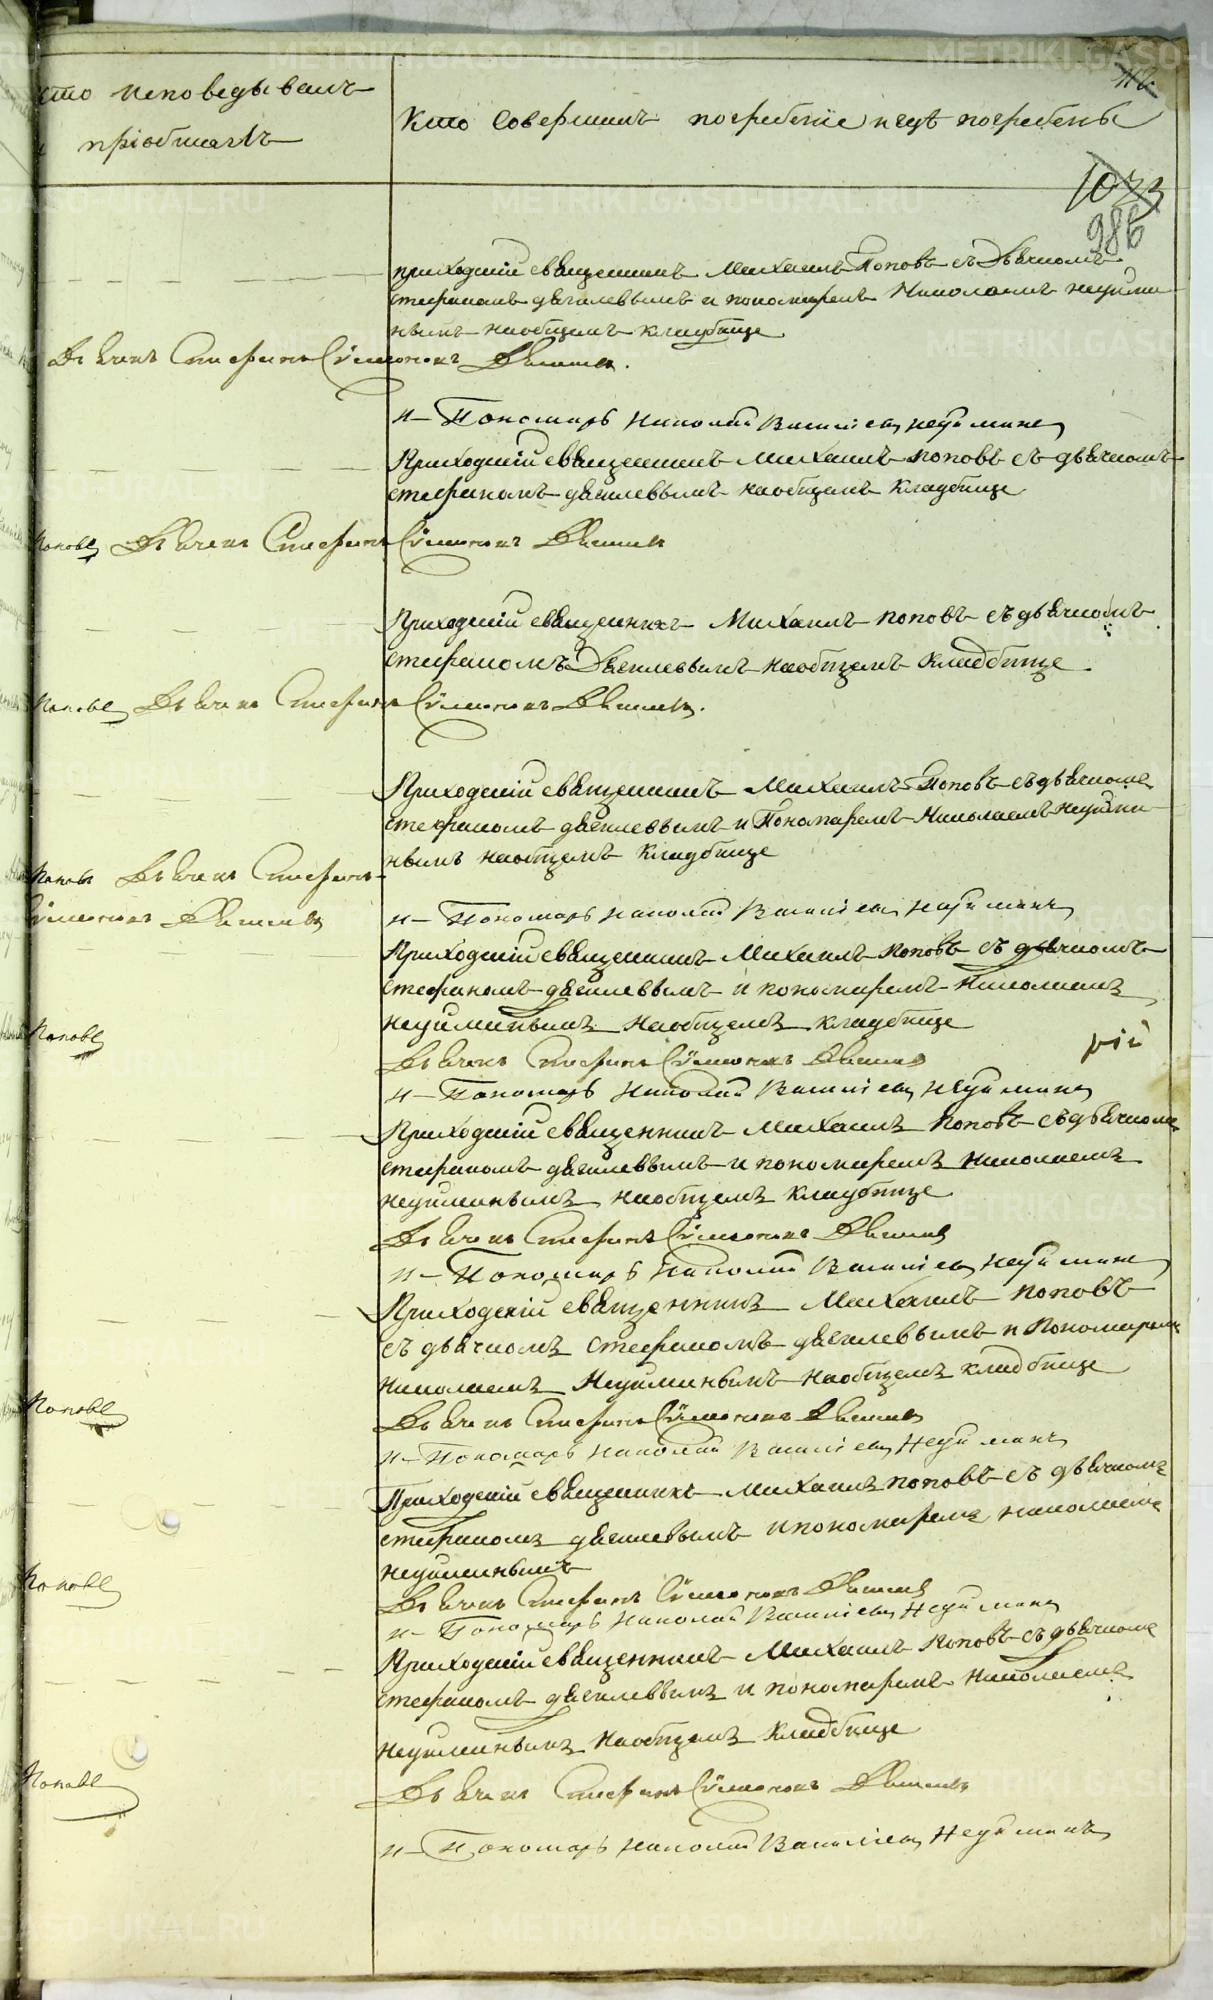 METRIKI.GASO-URAL.RU
кто исповедывалъ
и пріобщалъ
Кто совершалъ погребеніе и гдѣ погребены
1023
986
приходскій священникъ Михаилъ Поповъ съ Дьячкомъ
стефаномъ дягилевымъ и пономаремъ Николаемъ неуйми
нымъ на общемъ кладбище
Дьячекъ Стефанъ Сѵмеоновъ
и Пономарь Николай Васильевъ неуйминъ
Приходскій священникъ Михаилъ поповъ съ дьячкомъ
стефаномъ дягилевымъ на общемъ кладбище
Поповъ Дьячекъ Стефанъ Сѵмеоновъ
Приходскій священникъ Михаилъ поповъ съ дьячкомъ
стефаномъ Дягилевымъ на общемъ кладбище
Поповъ Дьячекъ Стефанъ Сѵмеоновъ
Приходскій священникъ Михаилъ Поповъ съ дьячкомъ
стефаномъ дягилевымъ и Пономаремъ Николаемъ Неуйми
нымъ на общемъ кладбище
Поповъ Дьячекъ Стефанъ
Сѵмеоновъ
и Пономарь николай Васильевъ Неуйминъ
Приходскій священникъ Михаилъ поповъ съ дьячкомъ
стефаномъ дягилевымъ и пономаремъ Николаемъ
неуйминымъ на общемъ кладбище
Поповъ
Дьячекъ Стефанъ Сѵмеоновъ
и Пономарь Николай Васильевъ Неуйминъ
Приходскій священникъ Михаилъ Поповъ съ дьячкомъ
стефаномъ дягилевымъ и пономаремъ Николаемъ
неуйминымъ на общемъ кладбище
Дьячекъ Стефанъ Сѵмеоновъ
и Пономарь Николай Васильевъ Неуйминъ
Приходскій священникъ Михаилъ поповъ
съ дьячкомъ стефаномъ дягилевымъ и Пономаремъ
николаемъ Неуйминымъ на общемъ кладбище
Поповъ
Дьячекъ Стефанъ Сѵмеоновъ
и Пономарь николай Васильевъ Неуйминъ
Приходскій священникъ михаилъ поповъ съ дьячкомъ
стефаномъ дягилевымъ и пономаремъ николаемъ
неуйминымъ
Поповъ
Дьячекъ Стефанъ Сѵмеоновъ
и Пономарь Николай Васильевъ Неуйминъ
Приходскій священникъ Михаилъ Поповъ съ дьячкомъ
стефаномъ дягилевымъ и пономаремъ Николаемъ
Неуйминымъ на общемъ Кладбище
Поповъ
Дьячекъ Стефанъ Сѵмеоновъ
и Пономарь николай Васильевъ Неуйминъ